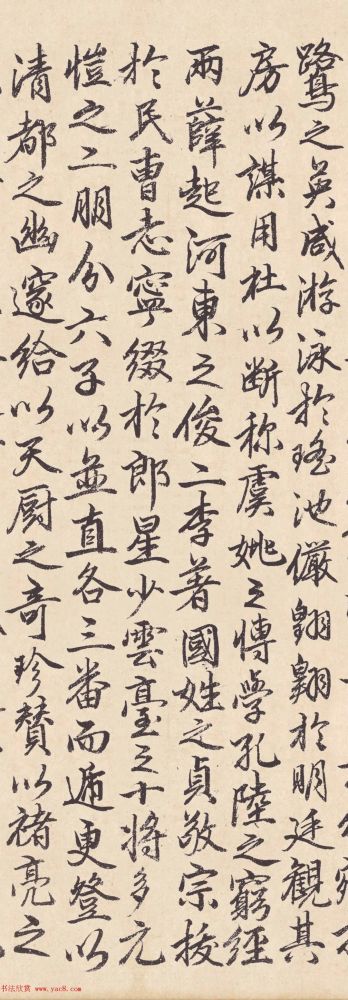 鷺之英咸游泳於瑤池儼翱翔於明廷觀其
房以謀用杜以斷称虞姚之博學孔陸之窮經
兩薛起河東之俊二李著國姓之貞敬宗拔
於民曹志寧綴於郎星少雲臺之十将多元
愷之二朋分六子以並直各三番而遞更登以
清都之幽邃給以天厨之奇珍賛以褚亮之
书法欣赏 www.yac8.com